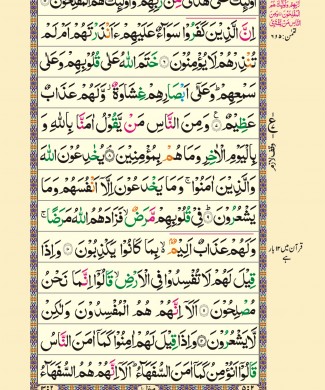 اُولٰٓئِكَ عَلٰى هُدًى مِّنْ رَّبِّهِمْ وَاُولٰٓئِكَ هُمُ الْمُفْلِحُوْنَ
اِنَّ الَّذِيْنَ كَفَرُوْا سَوَآءٌ عَلَيْهِمْ ءَاَنْذَرْتَهُمْ اَمْ لَمْ
تُنْذِرْهُمْ لَا يُؤْمِنُوْنَ ۝ خَتَمَ اللّٰهُ عَلٰى قُلُوْبِهِمْ وَعَلٰى
سَمْعِهِمْ ؕ وَعَلٰٓى اَبْصَارِهِمْ غِشَاوَةٌ ؗ وَّلَهُمْ عَذَابٌ
عَظِيْمٌ ۝ وَمِنَ النَّاسِ مَنْ يَّقُوْلُ اٰمَنَّا بِاللّٰهِ وَ
بِالْيَوْمِ الْاٰخِرِ وَمَا هُمْ بِمُؤْمِنِيْنَ ۝ يُخٰدِعُوْنَ اللّٰهَ
وَالَّذِيْنَ اٰمَنُوْا ۚ وَمَا يَخْدَعُوْنَ اِلَّاۤ اَنْفُسَهُمْ وَمَا
يَشْعُرُوْنَ ۝ فِىْ قُلُوْبِهِمْ مَّرَضٌ ۙ فَزَادَهُمُ اللّٰهُ مَرَضًا ۚ
وَلَهُمْ عَذَابٌ اَلِيْمٌ ۙ۬ بِمَا كَانُوْا يَكْذِبُوْنَ ۝ وَاِذَا
قِيْلَ لَهُمْ لَا تُفْسِدُوْا فِى الْاَرْضِ ۙ قَالُوْٓا اِنَّمَا نَحْنُ
مُصْلِحُوْنَ ۝ اَلَآ اِنَّهُمْ هُمُ الْمُفْسِدُوْنَ وَلٰكِنْ
لَّا يَشْعُرُوْنَ ۝ وَاِذَا قِيْلَ لَهُمْ اٰمِنُوْا كَمَآ اٰمَنَ النَّاسُ
قَالُوْٓا اَنُؤْمِنُ كَمَآ اٰمَنَ السُّفَهَآءُ ؕ اَلَآ اِنَّهُمْ هُمُ السُّفَهَآءُ
وقف لازم
قرآن میں ۱۲ بار
ہے